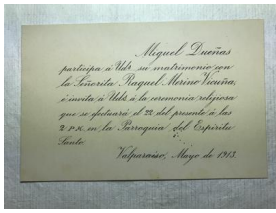 Miguel Dueñas
participa á Uds. su matrimonio con
la Señorita Raquel Merino Vicuña,
é invita á Uds. á la ceremonia religiosa
que se efectuará el 22 del presente á las
2 P.M. en la Parroquia del Espíritu
Santo.
Valparaíso, Mayo de 1913.